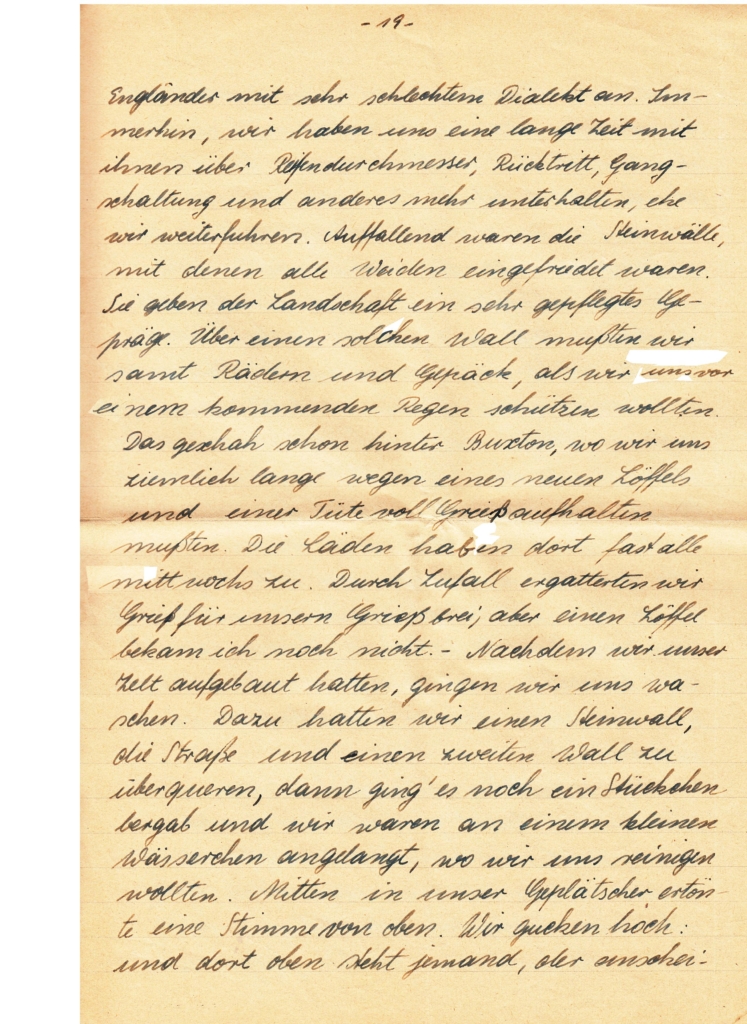 - 19 -
Engländer mit sehr schlechtem Dialekt an. Im-
merhin, wir haben uns eine lange Zeit mit
ihnen über Reifendurchmesser, Rücktritt, Gang-
schaltung und anderes mehr unterhalten, ehe
wir weiterfuhren. Auffallend waren die Steinwälle,
mit denen alle Weiden eingefriedet waren.
Sie geben der Landschaft ein sehr gepflegtes Ge-
präge. Über einen solchen Wall mußten wir
samt Rädern und Gepäck, als wir uns vor
einem kommenden Regen schützen wollten.
Das geschah schon hinter Buxton, wo wir uns
ziemlich lange wegen eines neuen Löffels
und einer Tüte voll Grieß aufhalten
mußten. Die Läden haben dort fast alle
mittwochs zu. Durch Zufall ergatterten wir
Grieß für unsern Grießbrei, aber einen Löffel
bekam ich noch nicht. - Nachdem wir unser
Zelt aufgebaut hatten, gingen wir uns wa-
schen. Dazu hatten wir einen Steinwall,
die Straße und einen zweiten Wall zu
überqueren, dann ging' es noch ein Stückchen
bergab und wir waren an einem kleinen
Wässerchen angelangt, wo wir uns reinigen
wollten. Mitten in unser Geplätscher ertön-
te eine Stimme von oben. Wir gucken hoch:
und dort oben steht jemand, der anschei-